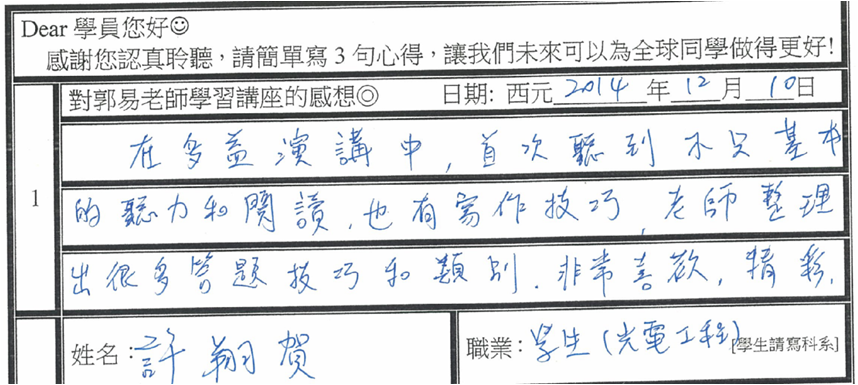 Dear 學員您好☺
感謝您認真聆聽，請簡單寫 3 句心得，讓我們未來可以為全球同學做得更好!
1
對郭易老師學習講座的感想◎ 日期: 西元 2014 年 12 月 10 日
在多益演講中，首次聽到不只基本
的聽力和閱讀，也有寫作技巧，老師整理
出很多答題技巧和類別．非常喜歡，精彩．
姓名：許翔賀 職業：學生(光電工程) [學生請寫科系]